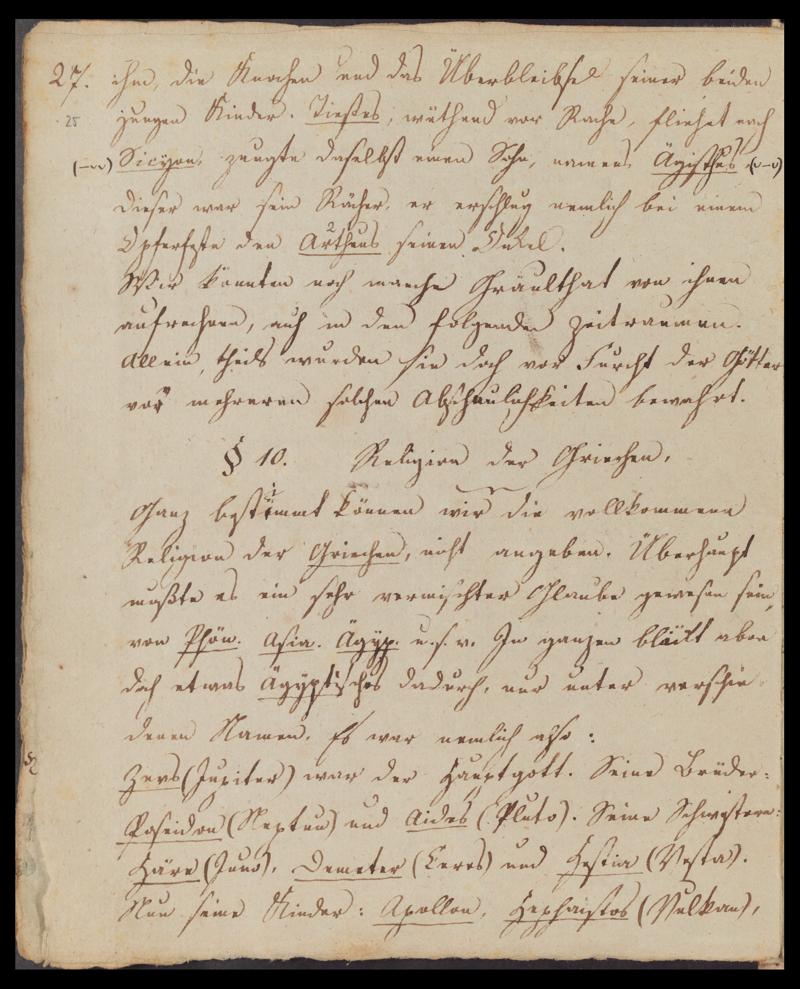 27. ihm, die Knochen und das Überbleibsel seiner beiden
25 jungen Kinder. Tiestes, wüthend vor Rache, fliehet nach
(–⏑⏑) Sicyon, zeugte daselbst einen Sohn, namens, Ägisthus (⏑–⏑)
dieser war sein Rächer, er erschlug nemlich bei einem
Opferfeste den Artheus seinen Onkel.
Wir könnten noch manche Gräulthat von ihnen
aufrechnen, auch in den folgenden Zeitraumen.
Allein, theils wurden sie doch vor Furcht der Götter
vor mehreren solchen Abscheulichkeiten bewahrt.
§ 10. Religion der Griechen.
Ganz bestimmt können wir die vollkommene
Religion der Griechen, nicht angeben. Überhaupt
mußte es ein sehr vermischter Glaube gewesen sein,
von Phön. Asia. Ägyp. u.s.v. In ganzen bläikt aber
doch etwas Ägyptisches dadurch, nur unter verschie
denen Namen. Es war nemlich also:
Zevs (Jupiter) war der Hauptgott. Seine Brüder:
Poseidon (Neptun) und Aides (Pluto). Seine Schwestern:
Häre (Juno), Demeter (Ceres) und Hestia (Vesta).
Nun seine Kinder: Apollon, Hephaistos (Vulkan),